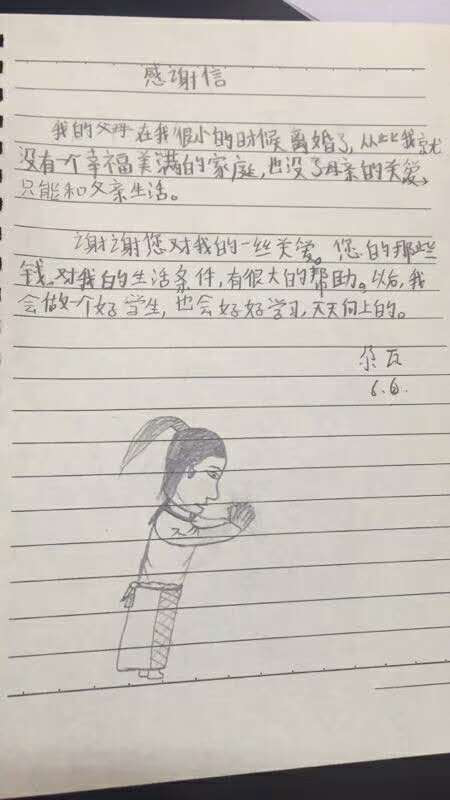 感谢信
我的父母在我很小的时候离婚了,从此我就
没有一个幸福美满的家庭,也没了母亲的关爱,
只能和父亲生活。
谢谢您对我的一些关爱。您的那些
钱。对我的生活条件,有很大的帮助。以后,我
会做一个好学生,也会好好学习,天天向上的。
尕瓦
6.6.